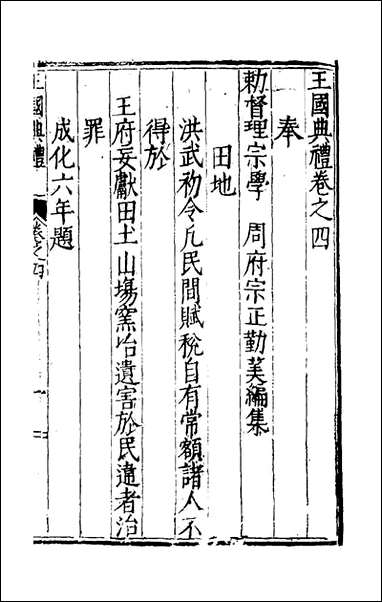 王國典禮卷之四
奉
勅督理宗學　周府宗正勤美編集
田地
洪武初令凢民間賦稅自有常額諸人不
得於
王府妄獻田土山塲窑冶遺害於民違者治
罪
成化六年題
王國典禮
卷之四
一